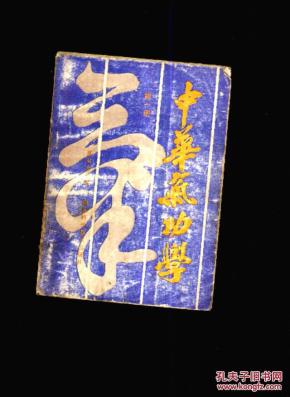 氣
中華氣功學
孔夫子旧书网
www.kongfz.com